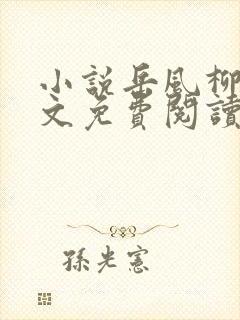 小説岳風柳
文免費閱讀
孫光憲